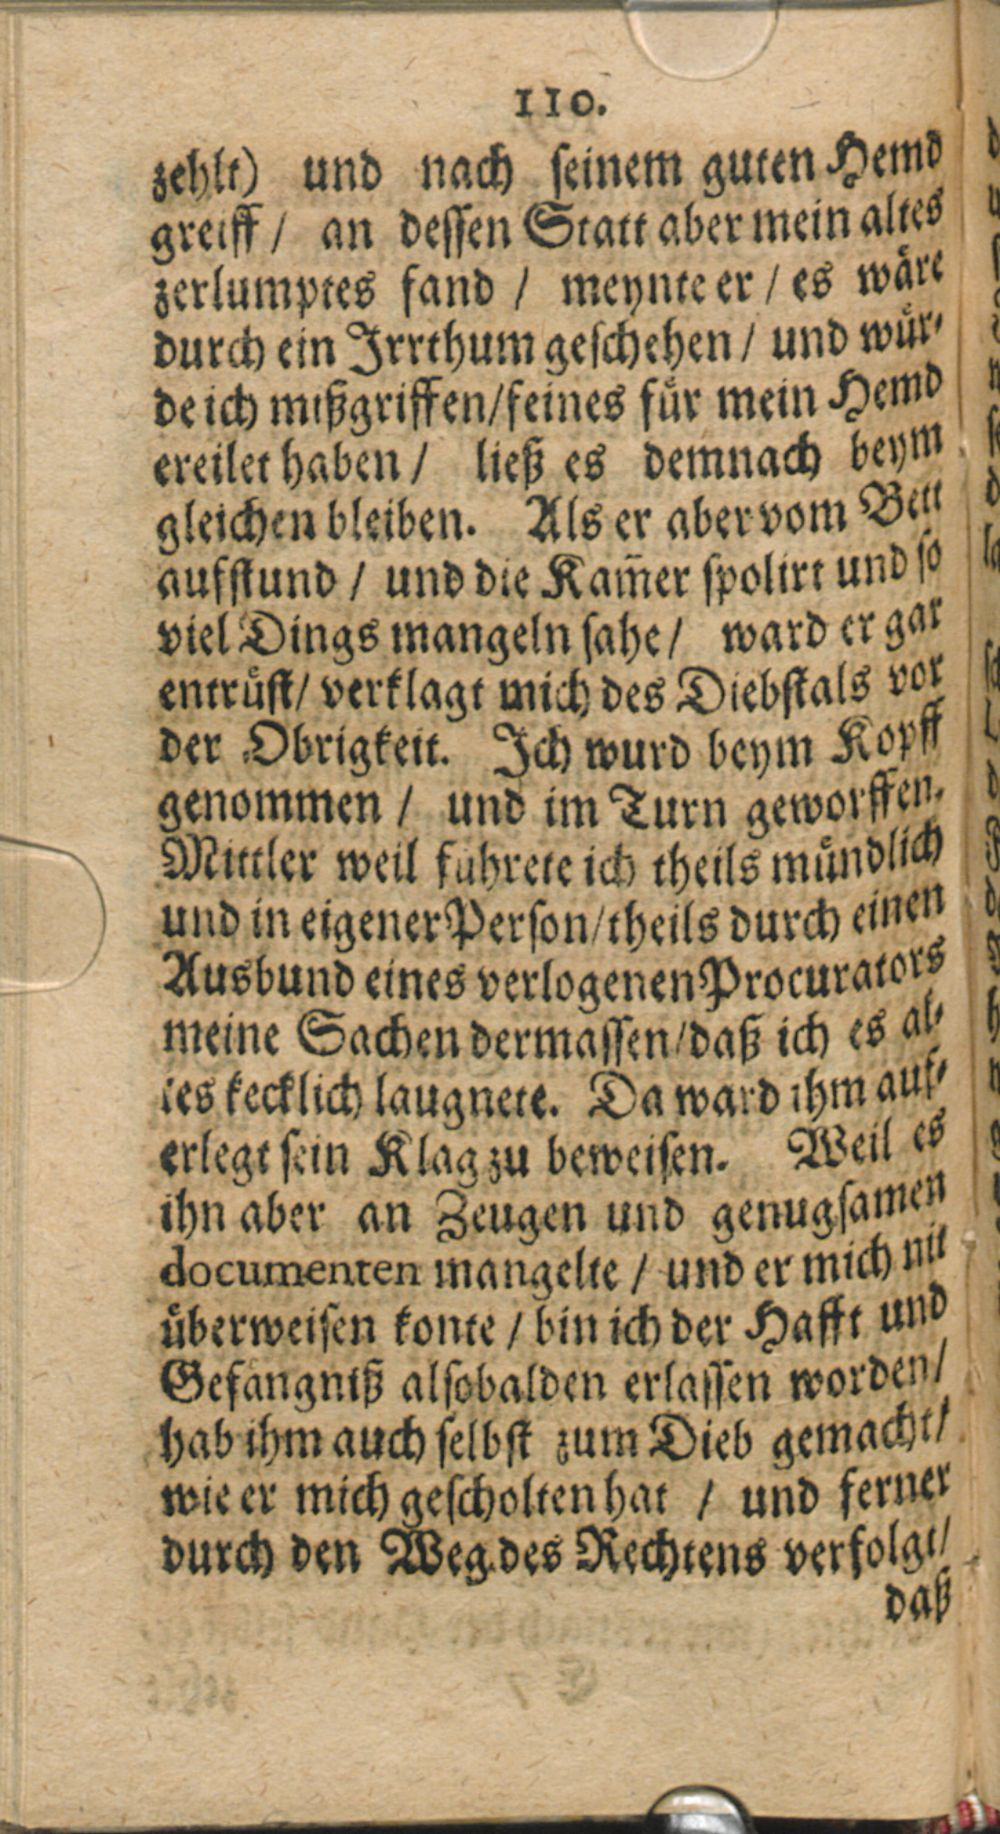 110.
zehlt) und nach seinem guten Hemd
greiff / an dessen Statt aber mein altes
zerlumptes fand / meynte er / es wäre
durch ein Irrthum geschehen / und wür-
de ich mißgriffen/seines für mein Hemd
ereilet haben / ließ es demnach beym
gleichen bleiben. Als er aber vom Bett
aufstund / und die Kam̃er spolirt und so
viel Dings mangeln sahe / ward er gar
entrüst/ verklagt mich des Diebstals vor
der Obrigkeit. Ich wurd beym Kopff
genommen / und im Turn geworffen.
Mittler weil führete ich theils mündlich
und in eigener Person/theils durch einen
Ausbund eines verlogenen Procurators
meine Sachen dermassen/daß ich es al-
les kecklich laugnete. Da ward ihm auf-
erlegt sein Klag zu beweisen. Weil es
ihn aber an Zeugen und genugsamen
documenten mangelte / und er mich nit
überweisen konte / bin ich der Hafft und
Gefängniß alsobalden erlassen worden/
hab ihm auch selbst zum Dieb gemacht/
wie er mich gescholten hat / und ferner
durch den Weg des Rechtens verfolgt/
daß